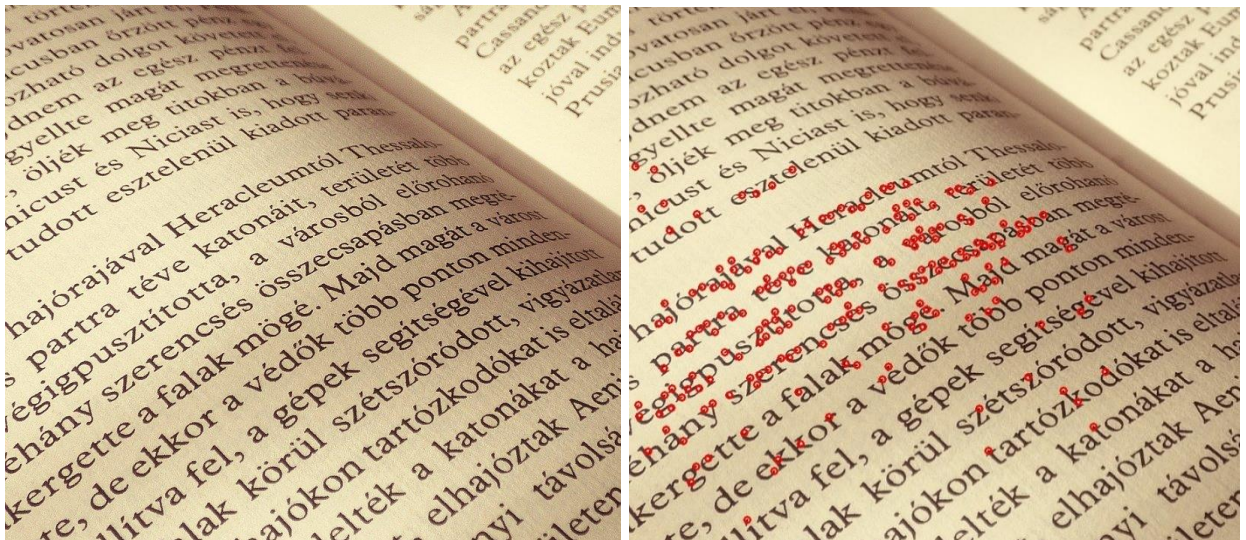 vatosan járt
icusban őrzött pénz
ozható dolgot követett
dnem az egész pénzt
gyellte magát
, öljék meg titokban a
nicust és Niciast is, hogy
tudott esztelenül kiadott paran-
hajórajával Heracleumtól Thessalo-
s partra téve katonáit, területét több
végigpusztította, a városból előrohanó
éhány szerencsés összecsapásban megre-
kergette a falak mögé. Majd magát a várost
te, de ekkor a védők több ponton minden-
llítva fel, a gépek segítségével kihajított
alak körül szétszóródott, vigyázatlan
hajókon tartózkodókat is eltalá
elték a katonákat a ha
elhajóztak Aen
nyi távolsá
ületen
partra
Cassand
az egész p
koztak Eum
jóval ind
Prusia
vatosan járt
icusban őrzött pénz
ozható dolgot követett
dnem az egész pénzt
gyellte magát
, öljék meg titokban a
nicust és Niciast is, hogy
tudott esztelenül kiadott paran-
hajórajával Heracleumtól Thessalo-
s partra téve katonáit, területét több
végigpusztította, a városból előrohanó
éhány szerencsés összecsapásban megre-
kergette a falak mögé. Majd magát a várost
te, de ekkor a védők több ponton minden-
lítva fel, a gépek segítségével kihajított
alak körül szétszóródott, vigyázatla
ajókon tartózkodókat is eltalá
elték a katonákat a ha
elhajóztak Aen
nyi távolsá
ületen
partra
Cassand
az egész p
koztak Eum
jóval ind
Prusia